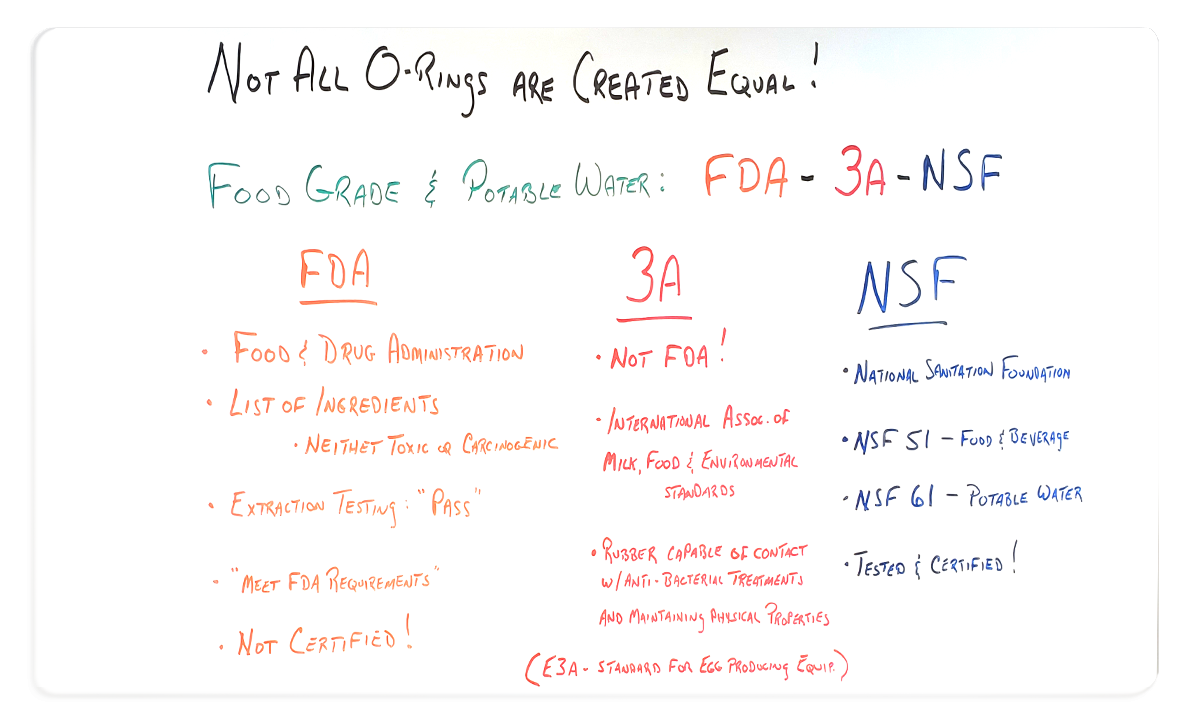 Not All O-Rings are Created Equal!
Food Grade & Potable Water: FDA - 3A - NSF
FDA
• Food & Drug Administration
• List of Ingredients
• Neithet Toxic or Carcinogenic
• Extraction Testing: "Pass"
• "Meet FDA Requirements"
• Not Certified!
3A
• Not FDA!
• International Assoc. of
Milk, Food & Environmental
Standards
• Rubber capable of contact
w/ Anti-Bacterial Treatments
and Maintaining Physical Properties
(E3A - Standard for Egg Producing Equip.)
NSF
• National Sanitation Foundation
• NSF 51 - Food & Beverage
• NSF 61 - Potable Water
• Tested & Certified!